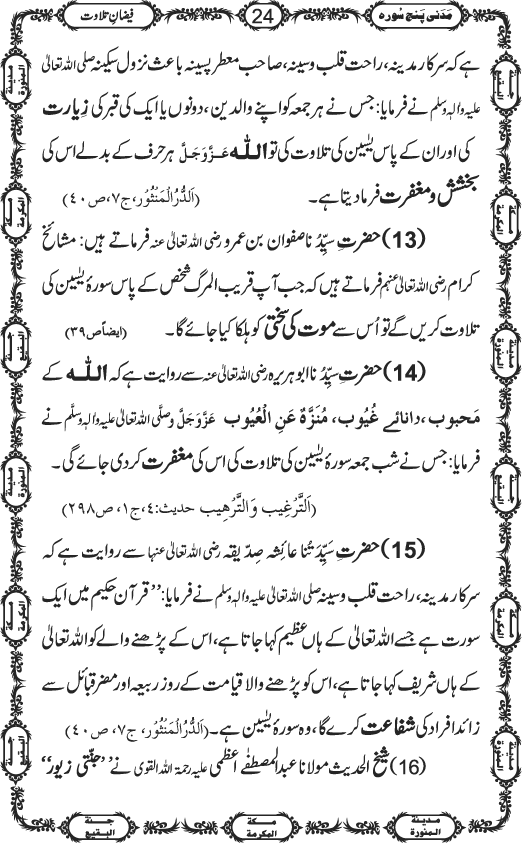 مَدَنی پنج سُورہ
24
فیضانِ تلاوت
ہے کہ سرکارِ مدینہ، راحتِ قلب و سینہ، صاحبِ معطر پسینہ باعثِ نزولِ سکینہ صلی اللہ تعالیٰ
علیہ واٰلہٖ وسلم نے فرمایا: جس نے ہر جمعہ کو اپنے والدین، دونوں یا ایک کی قبر کی زیارت
کی اور ان کے پاس یٰسین کی تلاوت کی تو اللّٰہ عَزَّوَجَلَّ ہر حرف کے بدلے اس کی
بخشش و مغفرت فرما دیتا ہے۔ (اَلدُّرُ الْمَنْثُوْر، ج۷، ص۴۰)
(13) حضرتِ سیِّدُنا صفوان بن عمرو رضی اللہ تعالیٰ عنہ فرماتے ہیں: مشائخِ
کرام رضی اللہ تعالیٰ عنہم فرماتے ہیں کہ جب آپ قریب المرگ شخص کے پاس سورۂ یٰسین کی
تلاوت کریں گے تو اُس سے موت کی سختی کو ہلکا کیا جائے گا۔ (ایضاً ص۳۹)
(14) حضرتِ سیِّدُنا ابو ہریرہ رضی اللہ تعالیٰ عنہ سے روایت ہے کہ اللّٰہ کے
مَحبوب، دانائے غُیُوب، مُنَزَّہٌ عَنِ الْعُیُوب عَزَّوَجَلَّ وصلَّی اللہ تعالیٰ علیہ واٰلہٖ وسلَّم نے
فرمایا: جس نے شبِ جمعہ سورۂ یٰسین کی تلاوت کی اس کی مغفرت کر دی جائے گی۔
(اَلتَّرغِیب وَالتَّرْہِیب حدیث:۴، ج۱، ص۲۹۸)
(15) حضرتِ سَیِّدَتُنا عائشہ صِدّیقہ رضی اللہ تعالیٰ عنہا سے روایت ہے کہ
سرکارِ مدینہ، راحتِ قلب و سینہ صلی اللہ تعالیٰ علیہ واٰلہٖ وسلم نے فرمایا: ’’قرآنِ حکیم میں ایک
سورت ہے جسے اللہ تعالیٰ کے ہاں عظیم کہا جاتا ہے، اس کے پڑھنے والے کو اللہ تعالیٰ
کے ہاں شریف کہا جاتا ہے، اس کو پڑھنے والا قیامت کے روز ربیعہ اور مضر قبائل سے
زائد افراد کی شفاعت کرے گا، وہ سورۂ یٰسین ہے۔ (اَلدُّرُ الْمَنْثُوْر، ج۷، ص۴۰)
(16) شیخ الحدیث مولانا عبد المصطفٰے اعظمی علیہ رحمۃ اللہ القوی نے ’’جنّتی زیور‘‘
مدینۃ المنورۃ
مکۃ المکرمۃ
جنۃ البقیع